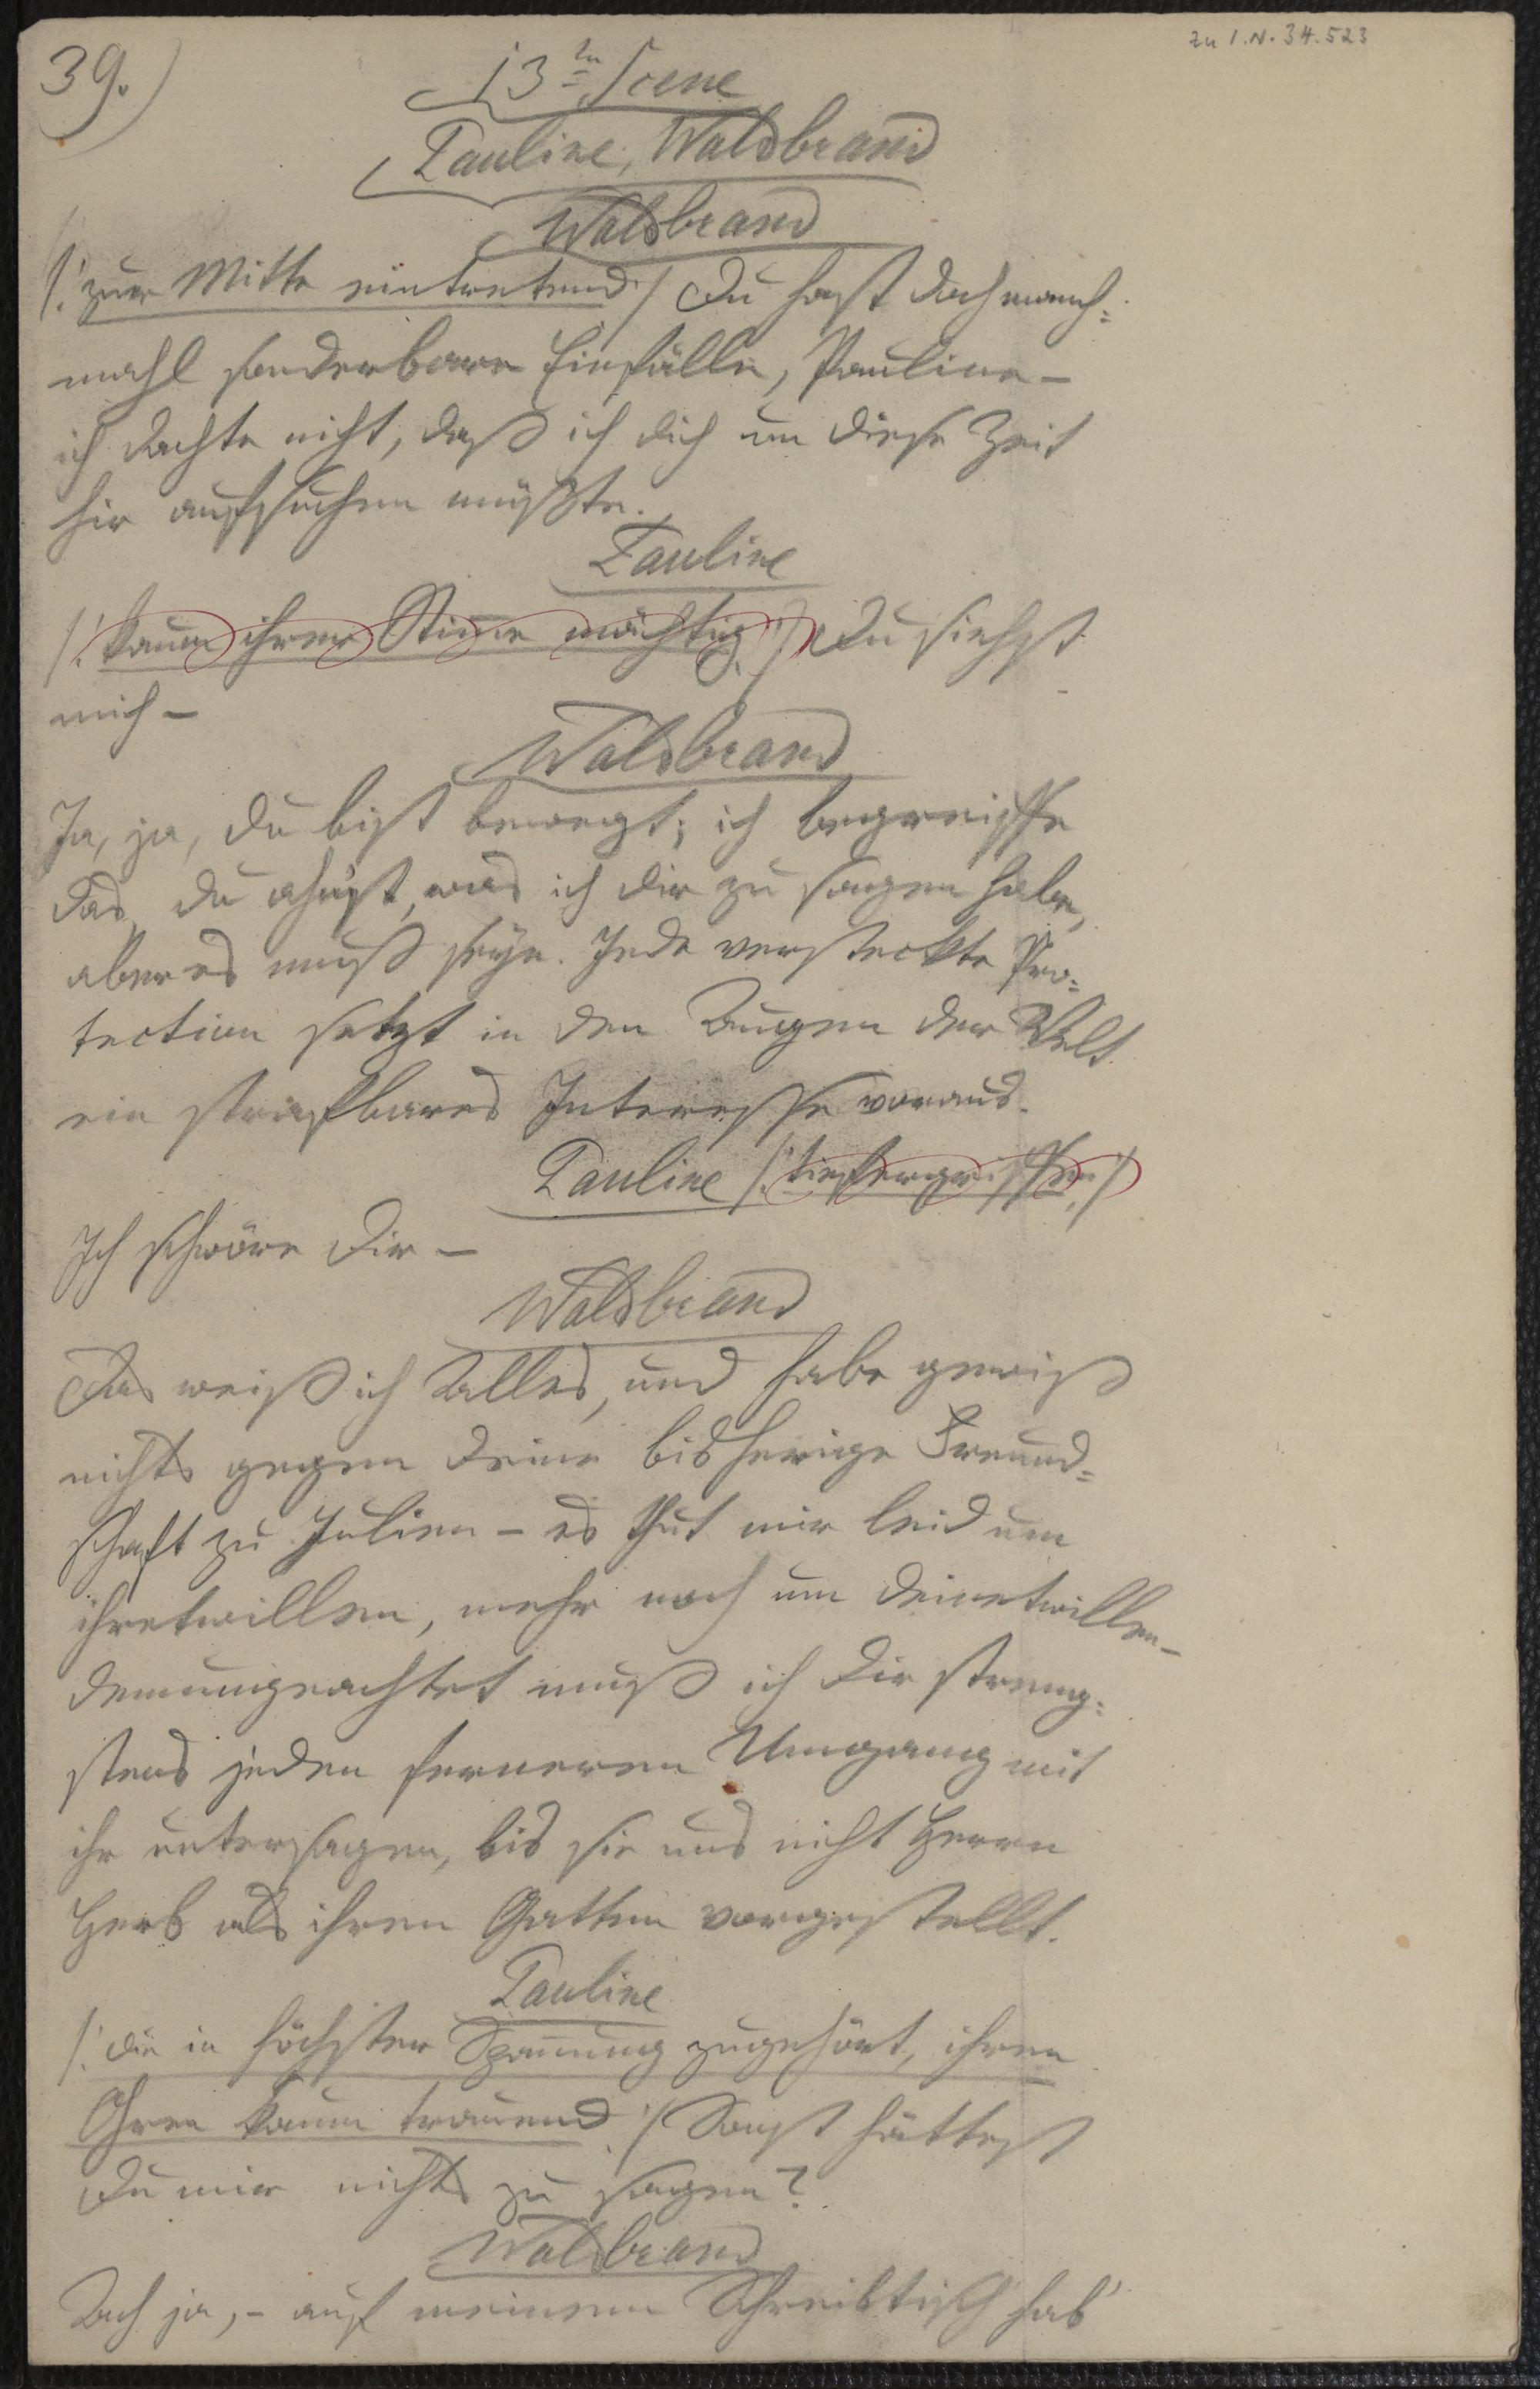 zu I.N. 34.523
39.)
13te Scene
Pauline, Waldbrand
Waldbrand
/: zur Mitte eintretend :/ Du hast doch manch=
mahl sonderbare Einfälle, Pauline –
ich dachte nicht, daß ich dich um diese Zeit
hier aufsuchen müßte.
Pauline
/: kaum ihrer Stim̄e mächtig :/ Du siehst
mich –
Waldbrand
Ja, ja, du bist bewegt; ich begreiffe
das, du ahnst, was ich dir zu sagen habe,
aber es muß seyn. Jede versteckte Pro=
tection setzt in den Augen der Welt
ein strafbares Interesse voraus.
Pauline /: tiefergriffen :/
Ich schwöre dir –
Waldbrand
Das weiß ich Alles, und habe gewiß
nichts gegen deine bisherige Freund=
schaft zu Julien – es thut mir leid um
ihretwillen, mehr noch um deinetwillen –
demungeachtet muß ich dir streng=
stens jeden ferneren Umgang mit
ihr untersagen, bis sie uns nicht Herrn
Herb als ihren Gatten vorgestellt.
Pauline
/: die in höchster Span̄ung zugehört, ihren
Ohren kaum trauend :/ Sonst hättest
Du mir nichts zu sagen?
Waldbrand
Ach ja, – auf meinem Schreibtisch hab'